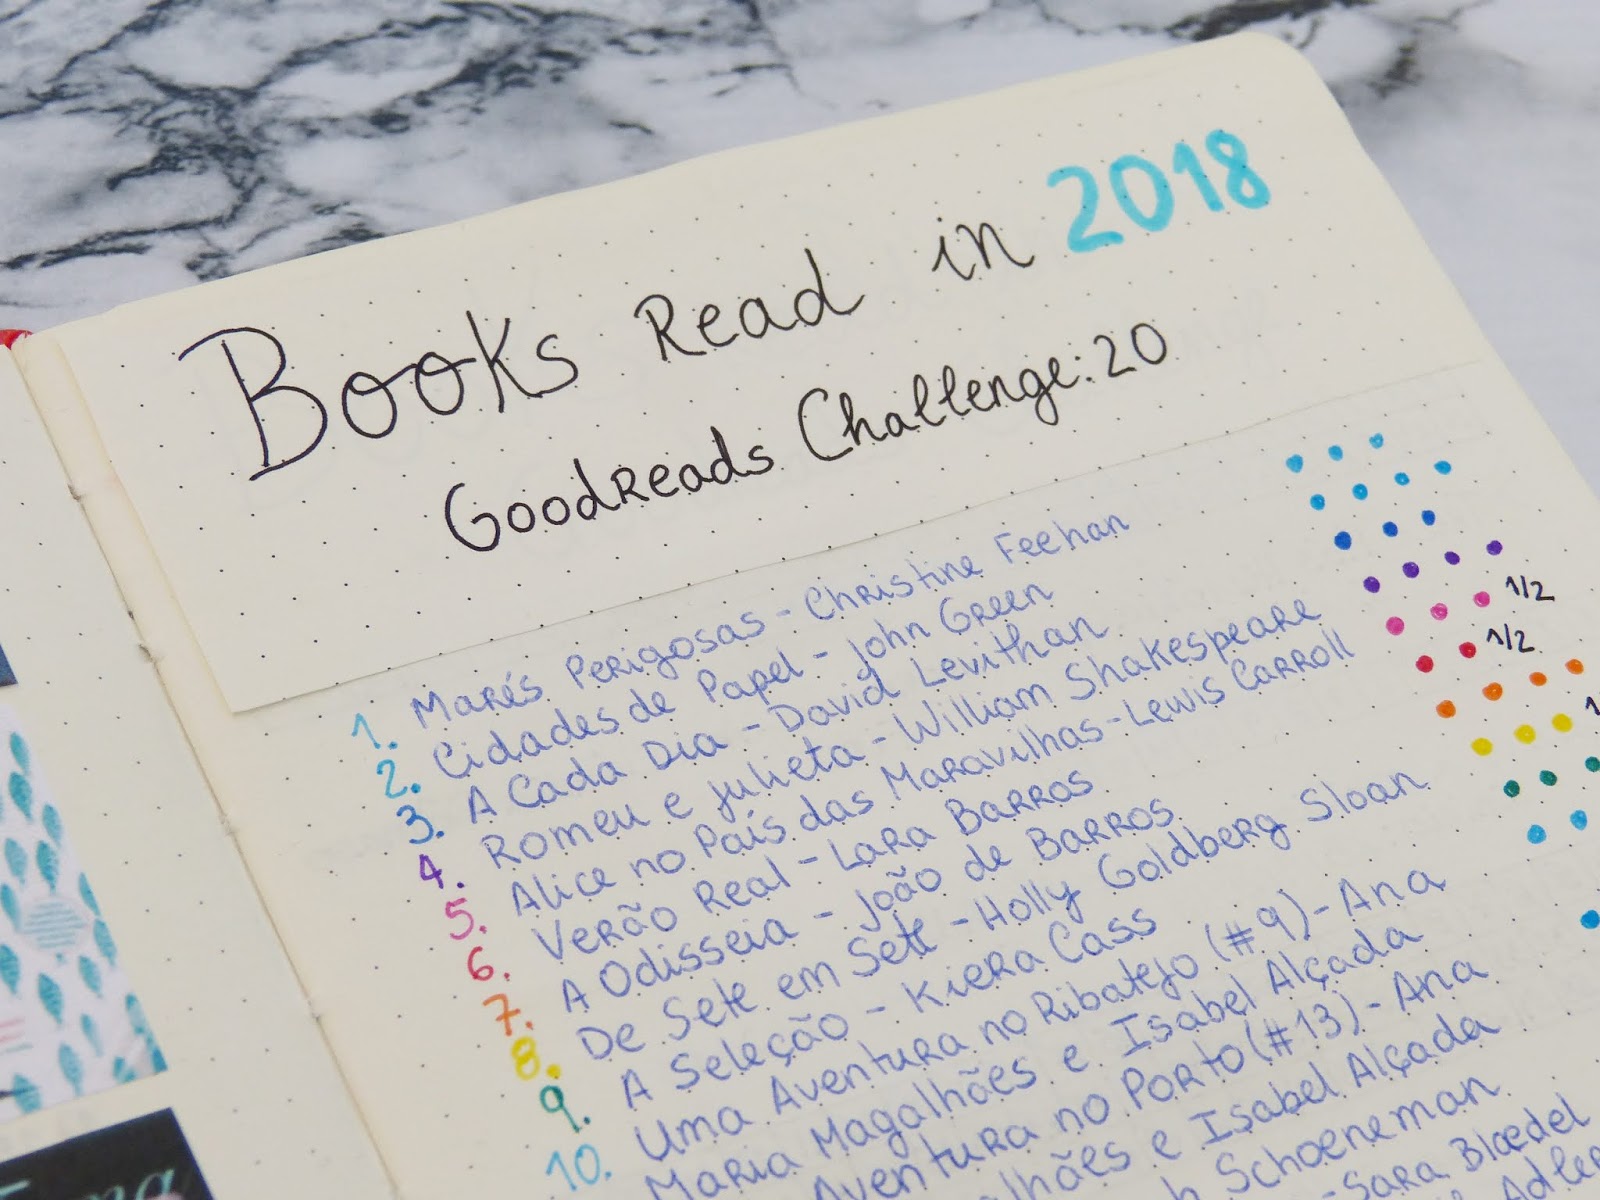 Books Read in 2018
Goodreads Challenge: 20
1. Marés Perigosas - Christine Feehan
2. Cidades de Papel - John Green
3. A Cada Dia - David Levithan
4. Romeu e Julieta - William Shakespeare
5. Alice no País das Maravilhas - Lewis Carroll 1/2
6. Verão Real - Lara Barros 1/2
7. A Odisseia - João de Barros
8. De Sete em Sete - Holly Goldberg Sloan
9. A Seleção - Kiera Cass
10. Uma Aventura no Ribatejo (#9) - Ana
Maria Magalhães e Isabel Alçada
Aventura no Porto (#13) - Ana
lhães e Isabel Alçada
Schoeneman
- Sara Blædel
Adler